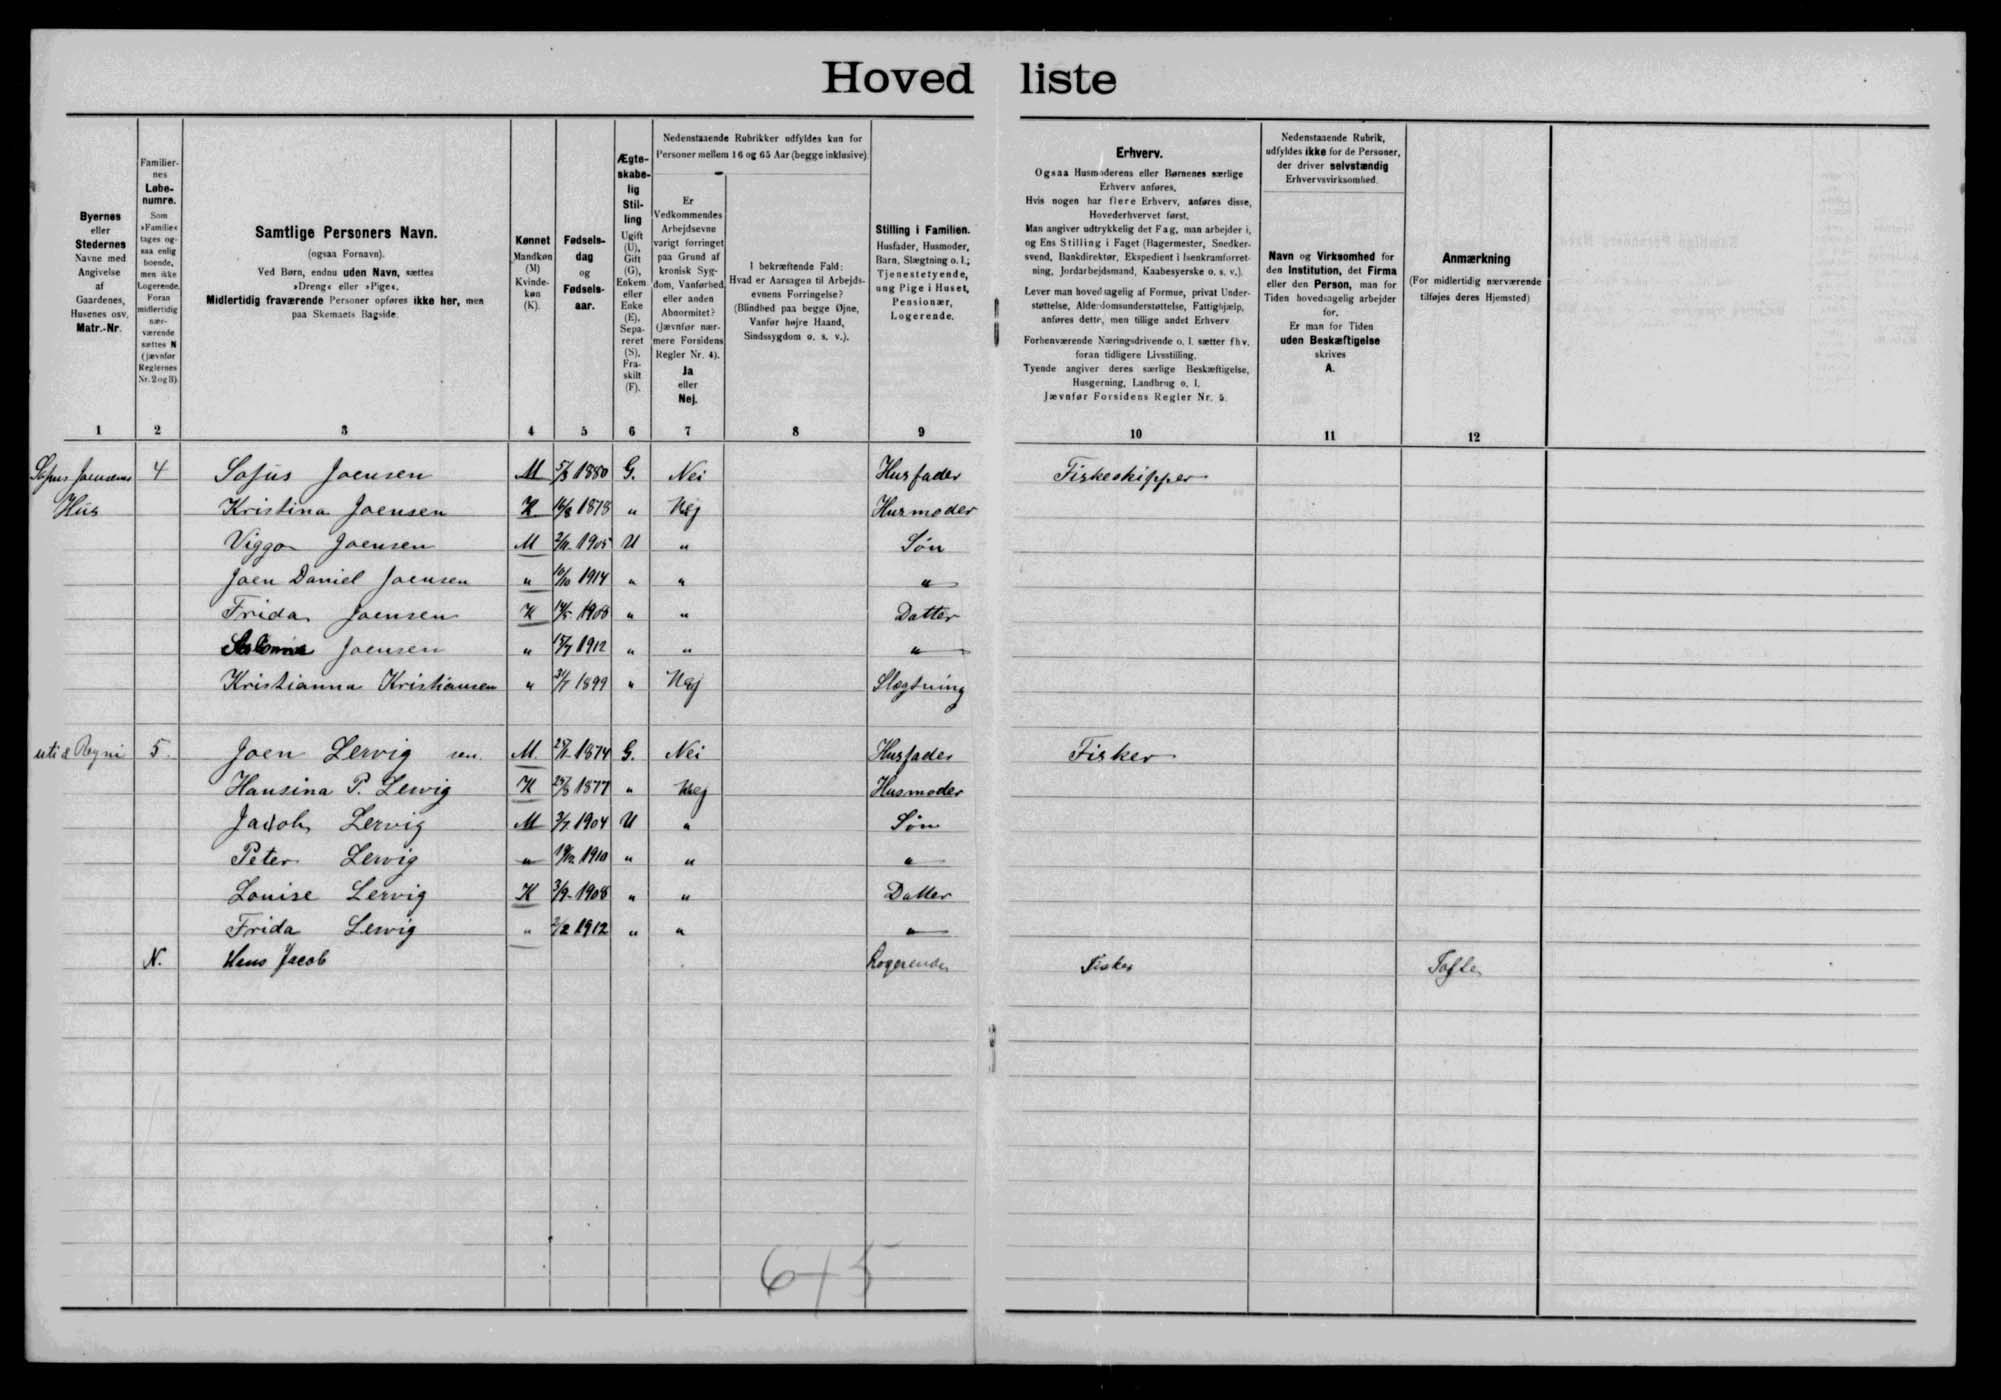 Hoved liste
Byernes
eller
Stedernes
Navne med
Angivelse
af
Gaardenes,
Husenes osv.
Matr.-Nr.
1
Familier-
nes
Løbe-
numre.
Som
»Familie«
tages og-
saa enlig
boende,
men ikke
Logerende.
Foran
midlertidig
nær-
værende
sættes N
(jævnfør
Reglernes
Nr. 2 og 3).
2
Samtlige Personers Navn.
(ogsaa Fornavn).
Ved Børn, endnu uden Navn, sættes
»Dreng« eller »Pige«.
Midlertidig fraværende Personer opføres ikke her, men
paa Skemaets Bagside.
3
Kønnet
Mandkøn
(M)
Kvinde-
køn
(K).
4
Fødsels-
dag
og
Fødsels-
aar.
5
Ægte-
skabe-
lig
Stil-
ling
Ugift
(U),
Gift
(G),
Enkem.
eller
Enke
(E).
Sepa-
reret
(S),
Fra-
skilt
(F).
6
Nedenstaaende Rubrikker udfyldes kun for
Personer mellem 16 og 65 Aar (begge inklusive).
Er
Vedkommendes
Arbejdsevne
varigt forringet
paa Grund af
kronisk Syg-
dom, Vanførhed
eller anden
Abnormitet?
(Jævnfør nær-
mere Forsidens
Regler Nr. 4).
Ja
eller
Nej.
7
I bekræftende Fald:
Hvad er Aarsagen til Arbejds-
evnens Forringelse?
(Blindhed paa begge Øjne,
Vanfør højre Haand,
Sindssygdom o. s. v.).
8
Stilling i Familien.
Husfader, Husmoder,
Barn, Slægtning o. l.;
Tjenestetyende,
ung Pige i Huset,
Pensionær,
Logerende.
9
Erhverv.
Ogsaa Husmoderens eller Børnenes særlige
Erhverv anføres.
Hvis nogen har flere Erhverv, anføres disse,
Hovederhvervet først.
Man angiver udtrykkelig det Fag, man arbejder i,
og Ens Stilling i Faget (Bagermester, Snedker-
svend, Bankdirektør, Ekspedient i Isenkramforret-
ning, Jordarbejdsmand, Kaabesyerske o. s. v.).
Lever man hovedsagelig af Formue, privat Under-
støttelse, Alderdomsunderstøttelse, Fattighjælp,
anføres dette, men tillige andet Erhverv
Forhenværende Næringsdrivende o. l. sætter fhv.
foran tidligere Livsstilling.
Tyende angiver deres særlige Beskæftigelse,
Husgerning, Landbrug o. l.
Jævnfør Forsidens Regler Nr. 5.
10
Nedenstaaende Rubrik,
udfyldes ikke for de Personer,
der driver selvstændig
Erhvervsvirksomhed.
Navn og Virksomhed for
den Institution, det Firma
eller den Person, man for
Tiden hovedsagelig arbejder
for.
Er man for Tiden
uden Beskæftigelse
skrives
A.
11
Anmærkning
(For midlertidig nærværende
tilføjes deres Hjemsted)
12
Sofus Joensens 4 Sofus Joensen M 5/3 1880 G. Nei Husfader Fiskeskipper
Hus Kristina Joensen K 1878 " Nej Husmoder
Viggo Joensen M 1905 U " Søn
Joen Daniel Joensen " 10/10 1914 " " "
Frida Joensen K 1908 " " Datter
Joensen " 1912 " " "
Kristianna Kristiansen " 1899 " Nej Slægtning
5. Joen Lervig sen. M. 1874 G. Nei Husfader Fisker
Hansina P. Lervig K 1877 " Nej Husmoder
Jacob Lervig M 1904 U " Søn
Peter Lervig " 19/12 1910 " " "
Louise Lervig K 3/9 - 1908 " " Datter
Frida Lervig " 2/2 1912 " " "
N. Hans Jacob Logerende Fisker Tofte
6+5